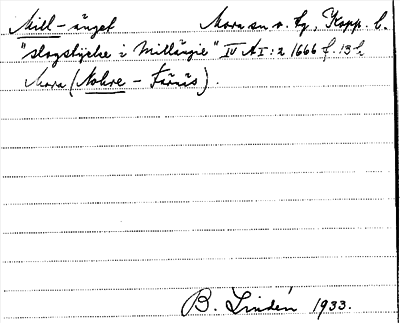 Mill-änget Mora sn o. tg, Kopp. l.
"slogstycke i Millängie" IV AI:2 1666 f. 13
Mora (Nohre - Färnäs).
B. Lindén 1933.